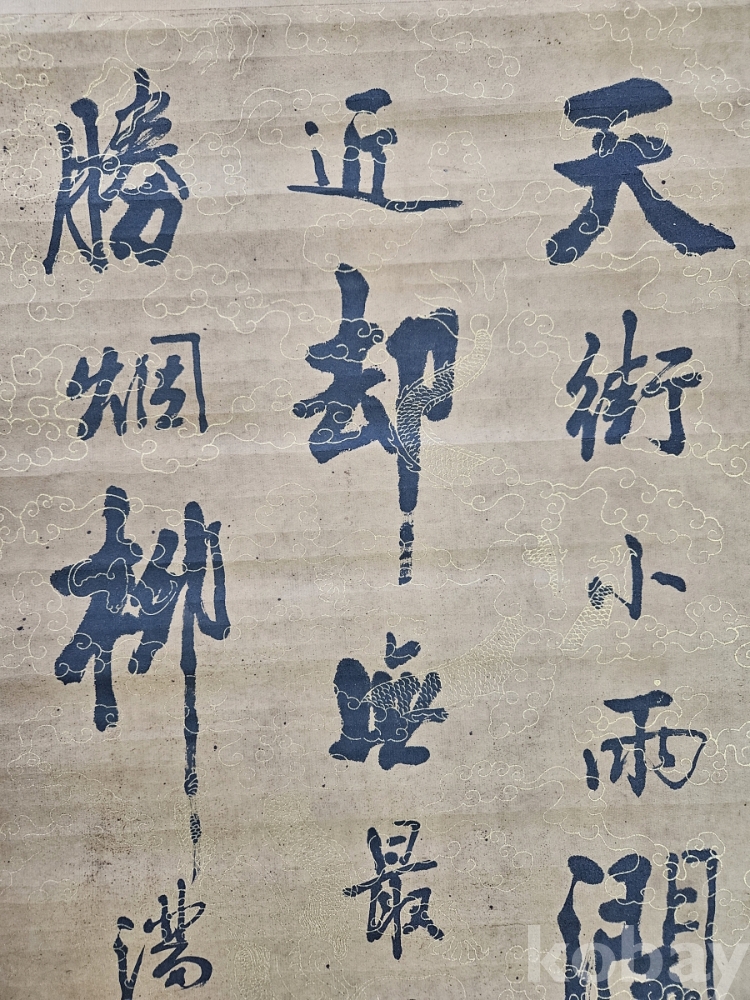 天街小雨潤
近却無最
勝烟柳滿
kobay